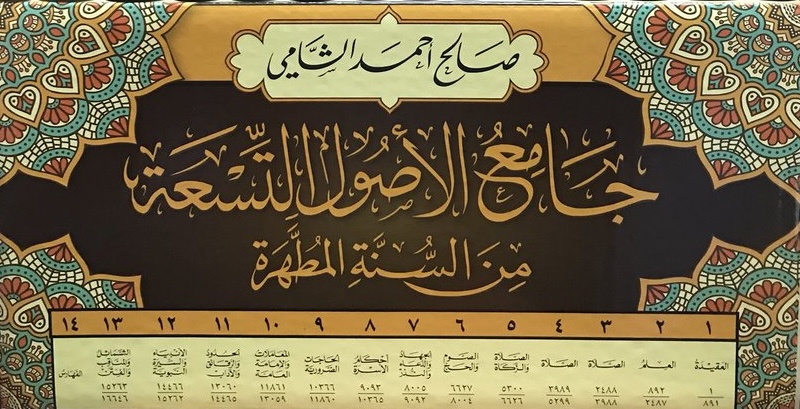 صالح أحمد الشامي
جَامِعُ الأُصُولِ التِّسْعَة
مِنَ السُّنَّةِ المُطَهَّرَة
١ ٢ ٣ ٤ ٥ ٦ ٧ ٨ ٩ ١٠ ١١ ١٢ ١٣ ١٤
العقيدة العلم الصلاة الصلاة الصلاة والزكاة الصوم والحج الجهاد والذكر أحكام الأسرة الحاجات الضرورية المعاملات والإمامة العامة الحدود والرقائق والآداب الأنبياء والسيرة النبوية الشمائل والمناقب والفتن الفهارس
١ ٨٩٢ ٢٤٨٨ ٣٩٨٩ ٥٣٠٠ ٦٦٢٧ ٨٠٠٥ ٩٠٩٣ ١٠٣٦٦ ١١٨٦١ ١٣٠٦٠ ١٤٤٦٦ ١٥٢٦٣
٨٩١ ٢٤٨٧ ٣٩٨٨ ٥٢٩٩ ٦٦٢٦ ٨٠٠٤ ٩٠٩٢ ١٠٣٦٥ ١١٨٦٠ ١٣٠٥٩ ١٤٤٦٥ ١٥٢٦٢ ١٦٦٤٦